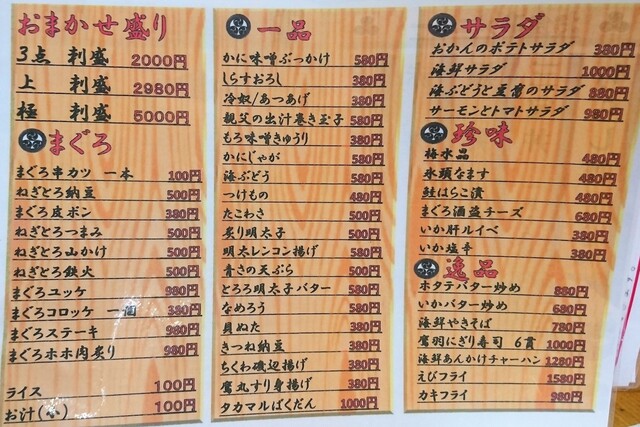 おまかせ盛り
3点 刺盛 2000円
上 刺盛 2980円
極 刺盛 5000円
まぐろ
まぐろ串カツ 一本 100円
ねぎとろ納豆 500円
まぐろ皮ポン 380円
ねぎとろつまみ 500円
ねぎとろ山かけ 500円
ねぎとろ鉄火 500円
まぐろユッケ 980円
まぐろコロッケ 一個 380円
まぐろステーキ 980円
まぐろホホ肉炙り 980円
ライス 100円
お汁(小) 100円
一品
かに味噌ぶっかけ 580円
しらすおろし 380円
冷奴/あつあげ 380円
親父の出汁巻き玉子 580円
もろ味噌きゅうり 380円
かにじゃが 580円
海ぶどう 580円
つけもの 480円
たこわさ 500円
炙り明太子 500円
明太レンコン揚げ 580円
青さの天ぷら 500円
とろろ明太子バター 580円
なめろう 580円
貝ぬた 380円
きつね納豆 380円
ちくわ磯辺揚げ 380円
鷹丸すり身揚げ 380円
タカマルばくだん 1000円
サラダ
おかんのポテトサラダ 380円
海鮮サラダ 1000円
海ぶどうと豆腐のサラダ 880円
サーモンとトマトサラダ 980円
珍味
梅水晶 480円
氷頭なます 480円
鮭はらこ漬 480円
まぐろ酒盗チーズ 680円
いか肝ルイベ 380円
いか塩辛 380円
逸品
ホタテバター炒め 880円
いかバター炒め 680円
海鮮やきそば 780円
鷹羽にぎり寿司 6貫 1000円
海鮮あんかけチャーハン 1280円
えびフライ 1580円
カキフライ 980円